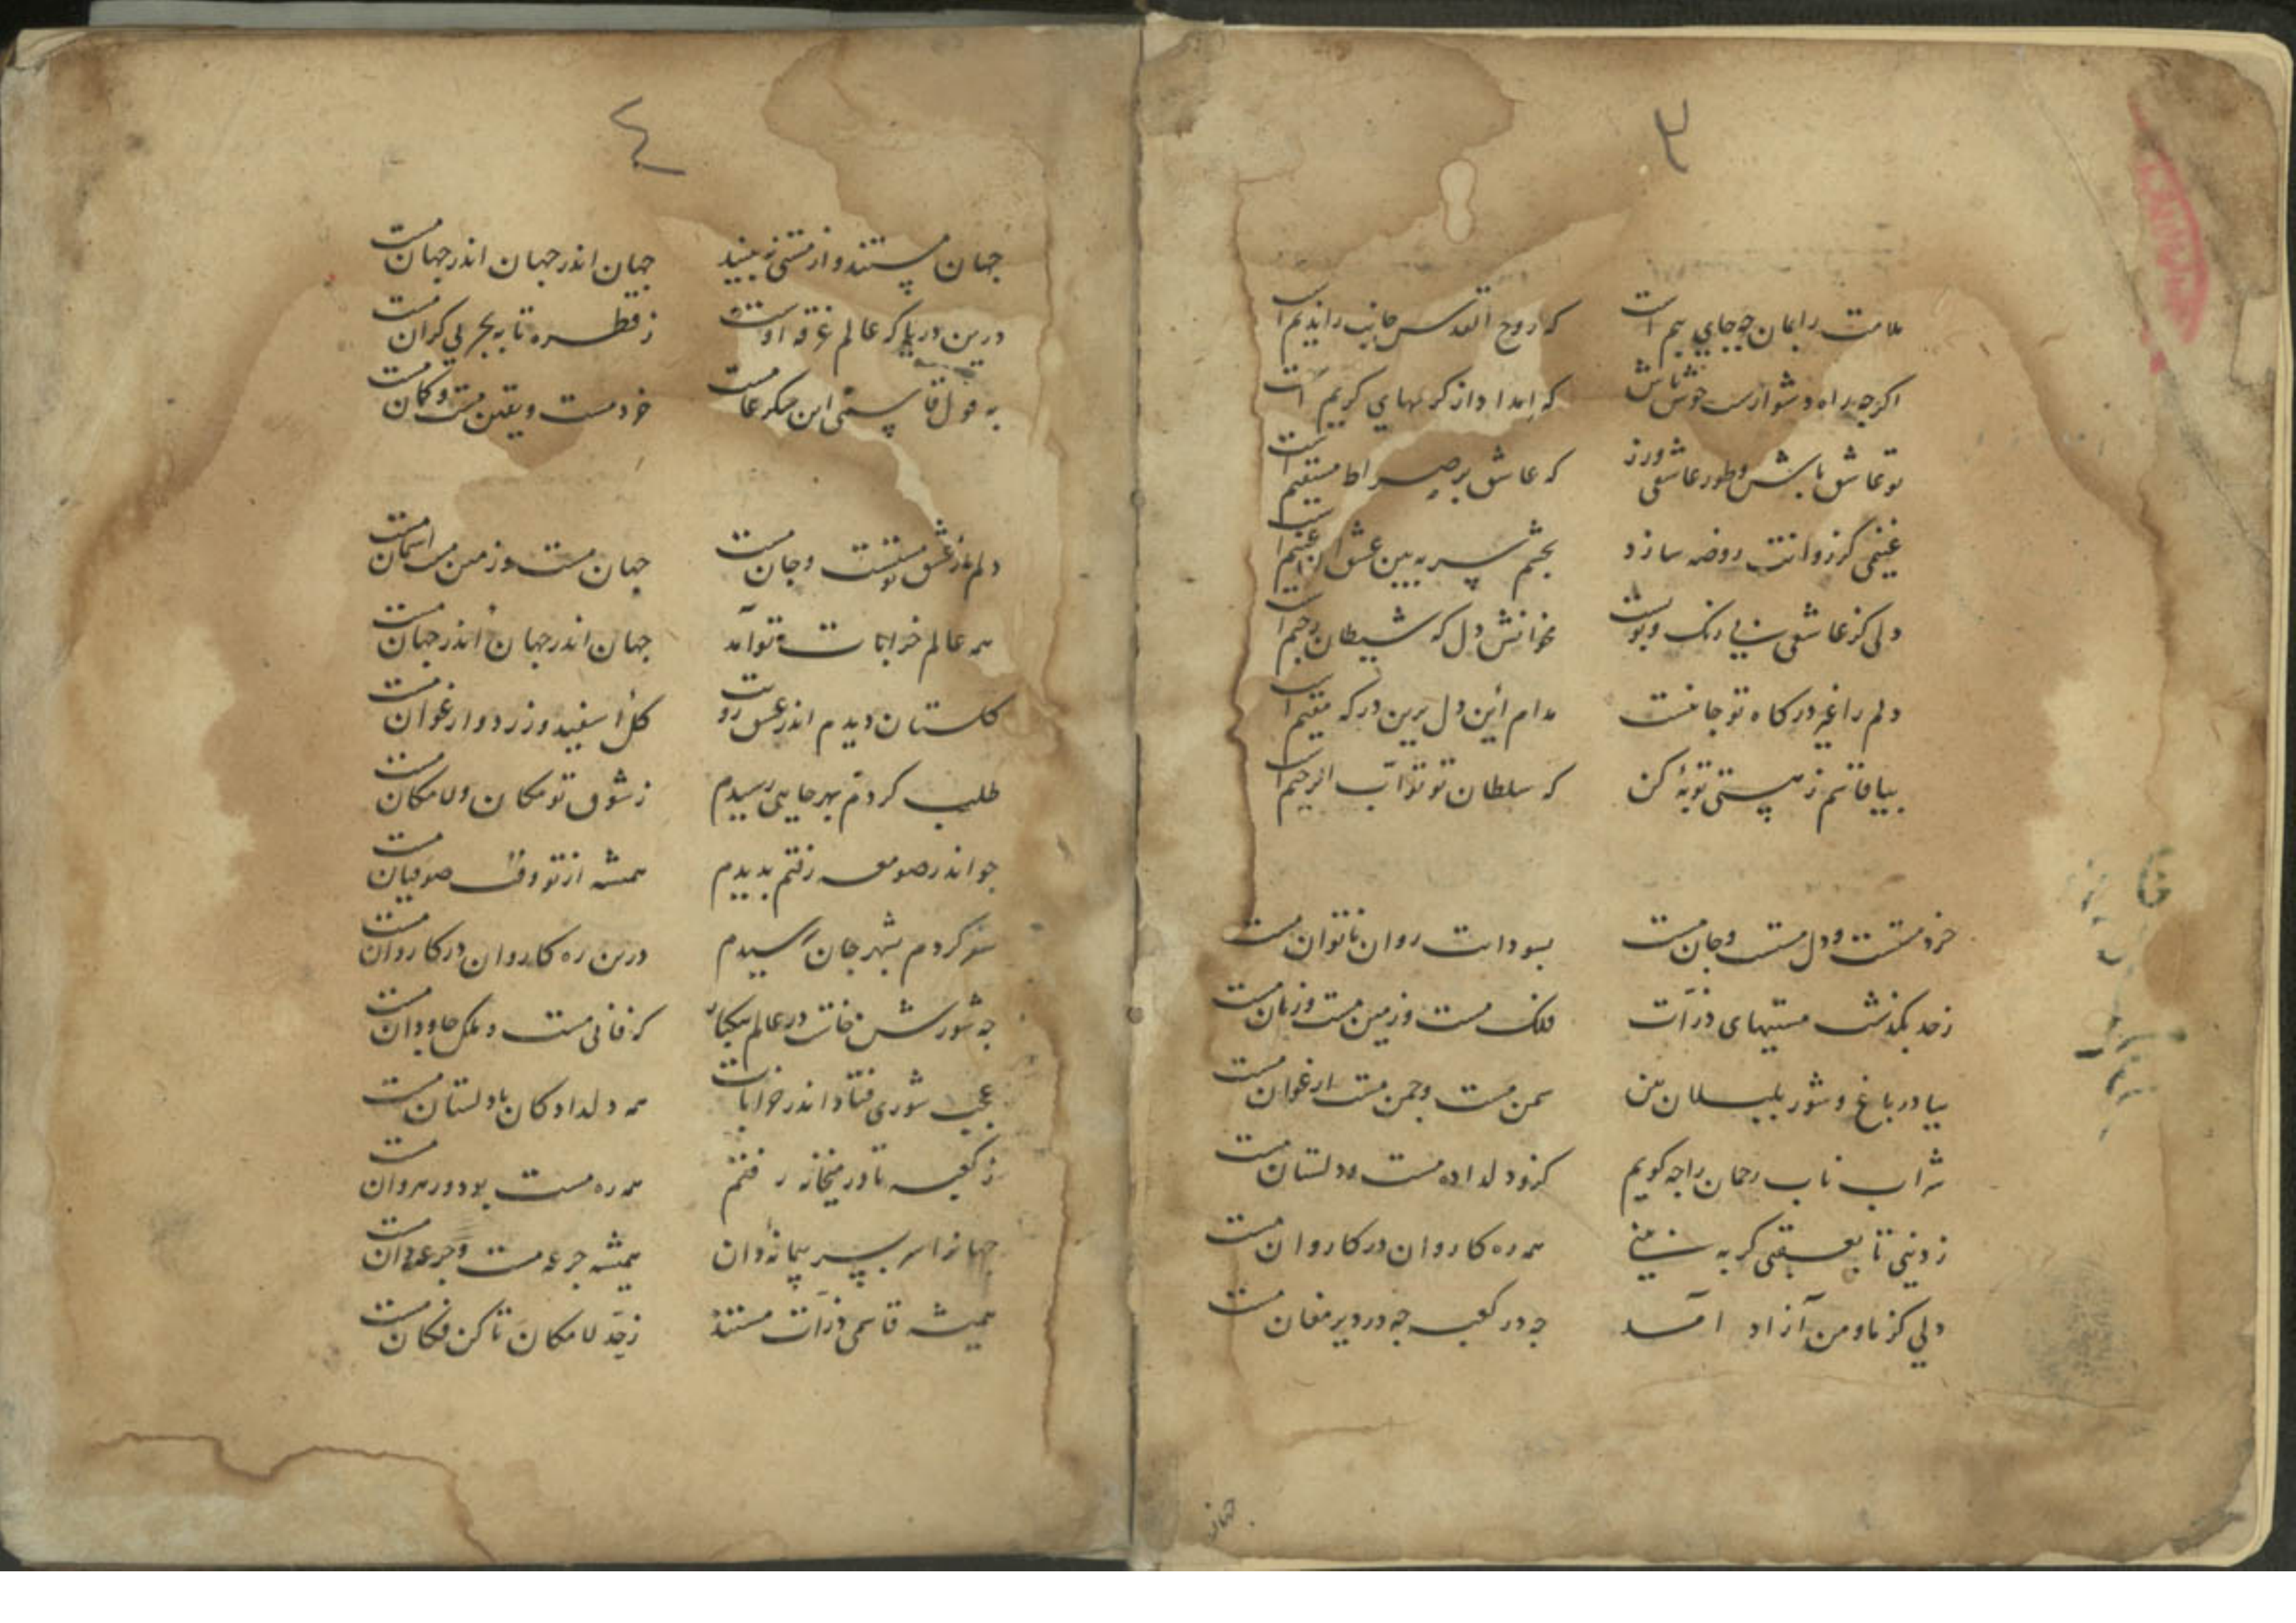 ٣
ملامت را بمان چه جای بیم است که روح القدس جانب را ندیم است
اکرچه راه دشوارست خوش باش که امداد از کرمهای کریم است
تو عاشق باش و طور عاشقی ورز که عاشق بر صراط مستقیم است
غنیمی کز روانت روضه سازد بچشم سر ببین عشق آن غنیم است
دلی کز عاشقی بی رنک و بویست مخوانش دل که شیطان رجیم است
دلم را غیر درکاه تو جا نیست مدام این دل برین درکه مقیم است
بیا قاسم ز هستی توبهٔ کن که سلطان تو تواب الرحیم است
خرد مستست و دل مست و جان مست بسودایت روان ناتوان مست
زحد بکذشت مستیهای ذرات فلک مست و زمین مست و زمان مست
بیا در باغ و شور بلبلان بین سمن مست و چمن مست ارغوان مست
شراب ناب رحمان را چه کویم کزو دلداده مست و دلستان مست
ز دنیی تا بعقبی کر ببینی همه ره کاروان در کاروان مست
دلی کز ما و من آزاد آمد چه در کعبه چه در دیر مغان مست
جهان
٤
جهان مستند و از مستی نبینند جهان اندر جهان اندر جهان مست
درین دریا که عالم غرقه اوست ز قطره تا به بحر بی کران مست
به قول قاسمی این خرد مست و یقین مست و کمان مست
دلم از عشق تو مستست و جان مست جهان مست و زمین مست آسمان مست
همه عالم خرابات تو آمد جهان اندر جهان اندر جهان مست
کلستان دیدم اندر عشق رویت کل اسفید و زرد و ارغوان مست
طلب کردم بهر جایی رسیدم ز شوق تو مکان و لامکان مست
چو اندر صومعه رفتم بدیدم همیشه از تو صوفیان مست
سفر کردم بشهر جان رسیدم درین ره کاروان در کاروان مست
چه شورش خاست در عالم بیکبار که فانی مست و ملک جاودان مست
عجب شوری فتاد اندر خرابات همه دلدادکان با دلستان مست
ز کعبه تا در میخانه رفتم همه ره مست بود و رهروان مست
جهانرا سر بسر پیمانه دان همیشه جرعه مست و جرعه دان مست
همیشه قاسمی ذرات مستند ز حد لامکان تا کن فکان مست